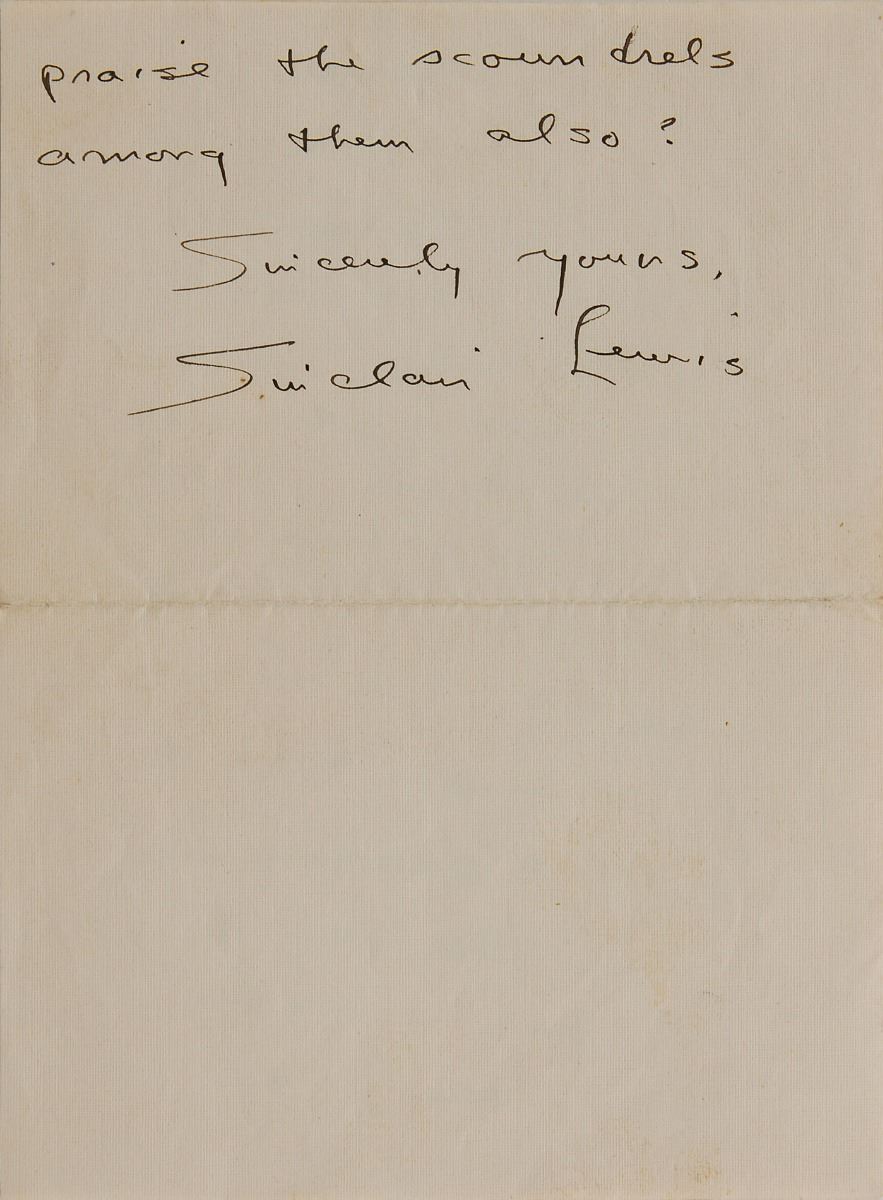 praise the scoundrels
among them also?
Sincerely yours,
Sinclair Lewis